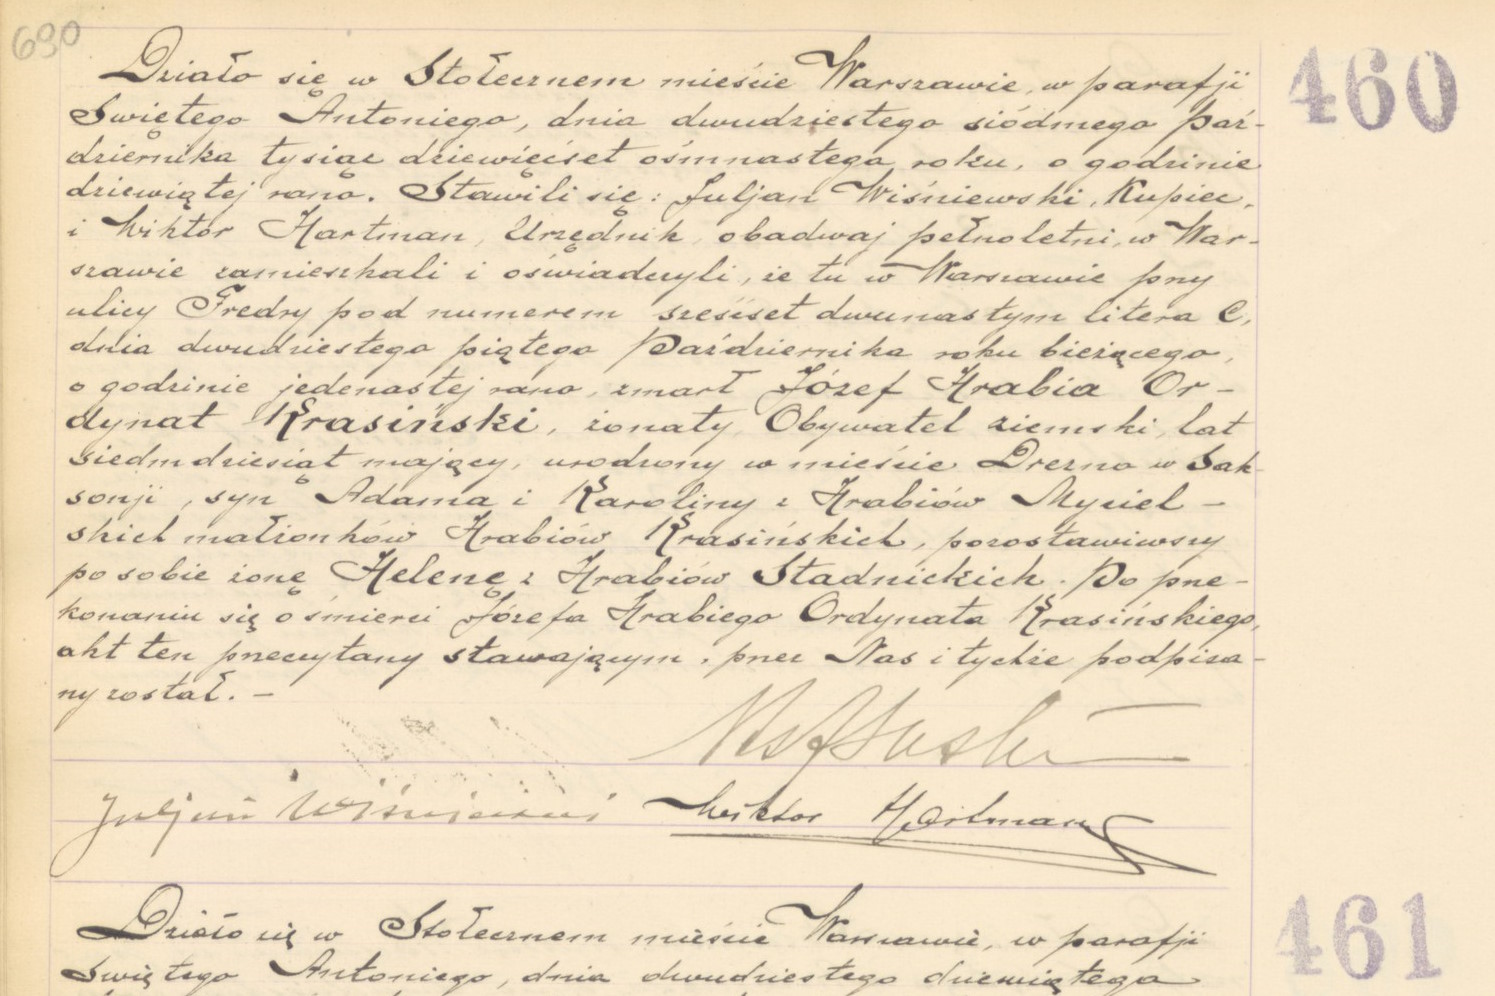 690
460
Działo się w Stołecznem mieście Warszawie, w parafji
Swiętego Antoniego, dnia dwudziestego siódmego Paź-
dziernika tysiąc dziewięćset ośmnastego roku, o godzinie
dziewiątej rano. Stawili się: Juljan Wiśniewski, Kupiec,
i Wiktor Hartman, Urzędnik, obadwaj pełnoletni, w War-
szawie zamieszkali i oświadczyli, że tu w Warszawie przy
ulicy Fredry pod numerem sześćset dwunastym litera C,
dnia dwudziestego piątego Października roku bieżącego,
o godzinie jedenastej rano, zmarł Józef Hrabia Or-
dynat Krasiński, żonaty, Obywatel ziemski, lat
siedmdziesiąt mający, urodzony w mieście Drezno w Sak-
sonji, syn Adama i Karoliny z Hrabiów Myciel-
skich małżonków Hrabiów Krasińskich, pozostawiwszy
po sobie żonę Helenę z Hrabiów Stadnickich. Po prze-
konaniu się o śmierci Józefa Hrabiego Ordynata Krasińskiego,
akt ten przeczytany stawającym, przez Nas i tychże podpisa-
ny został. –
Juljan Wiśniewski Wiktor Hartman
461
Działo się w Stołecznem mieście Warszawie, w parafji
Swiętego Antoniego, dnia dwudziestego dziewiątego